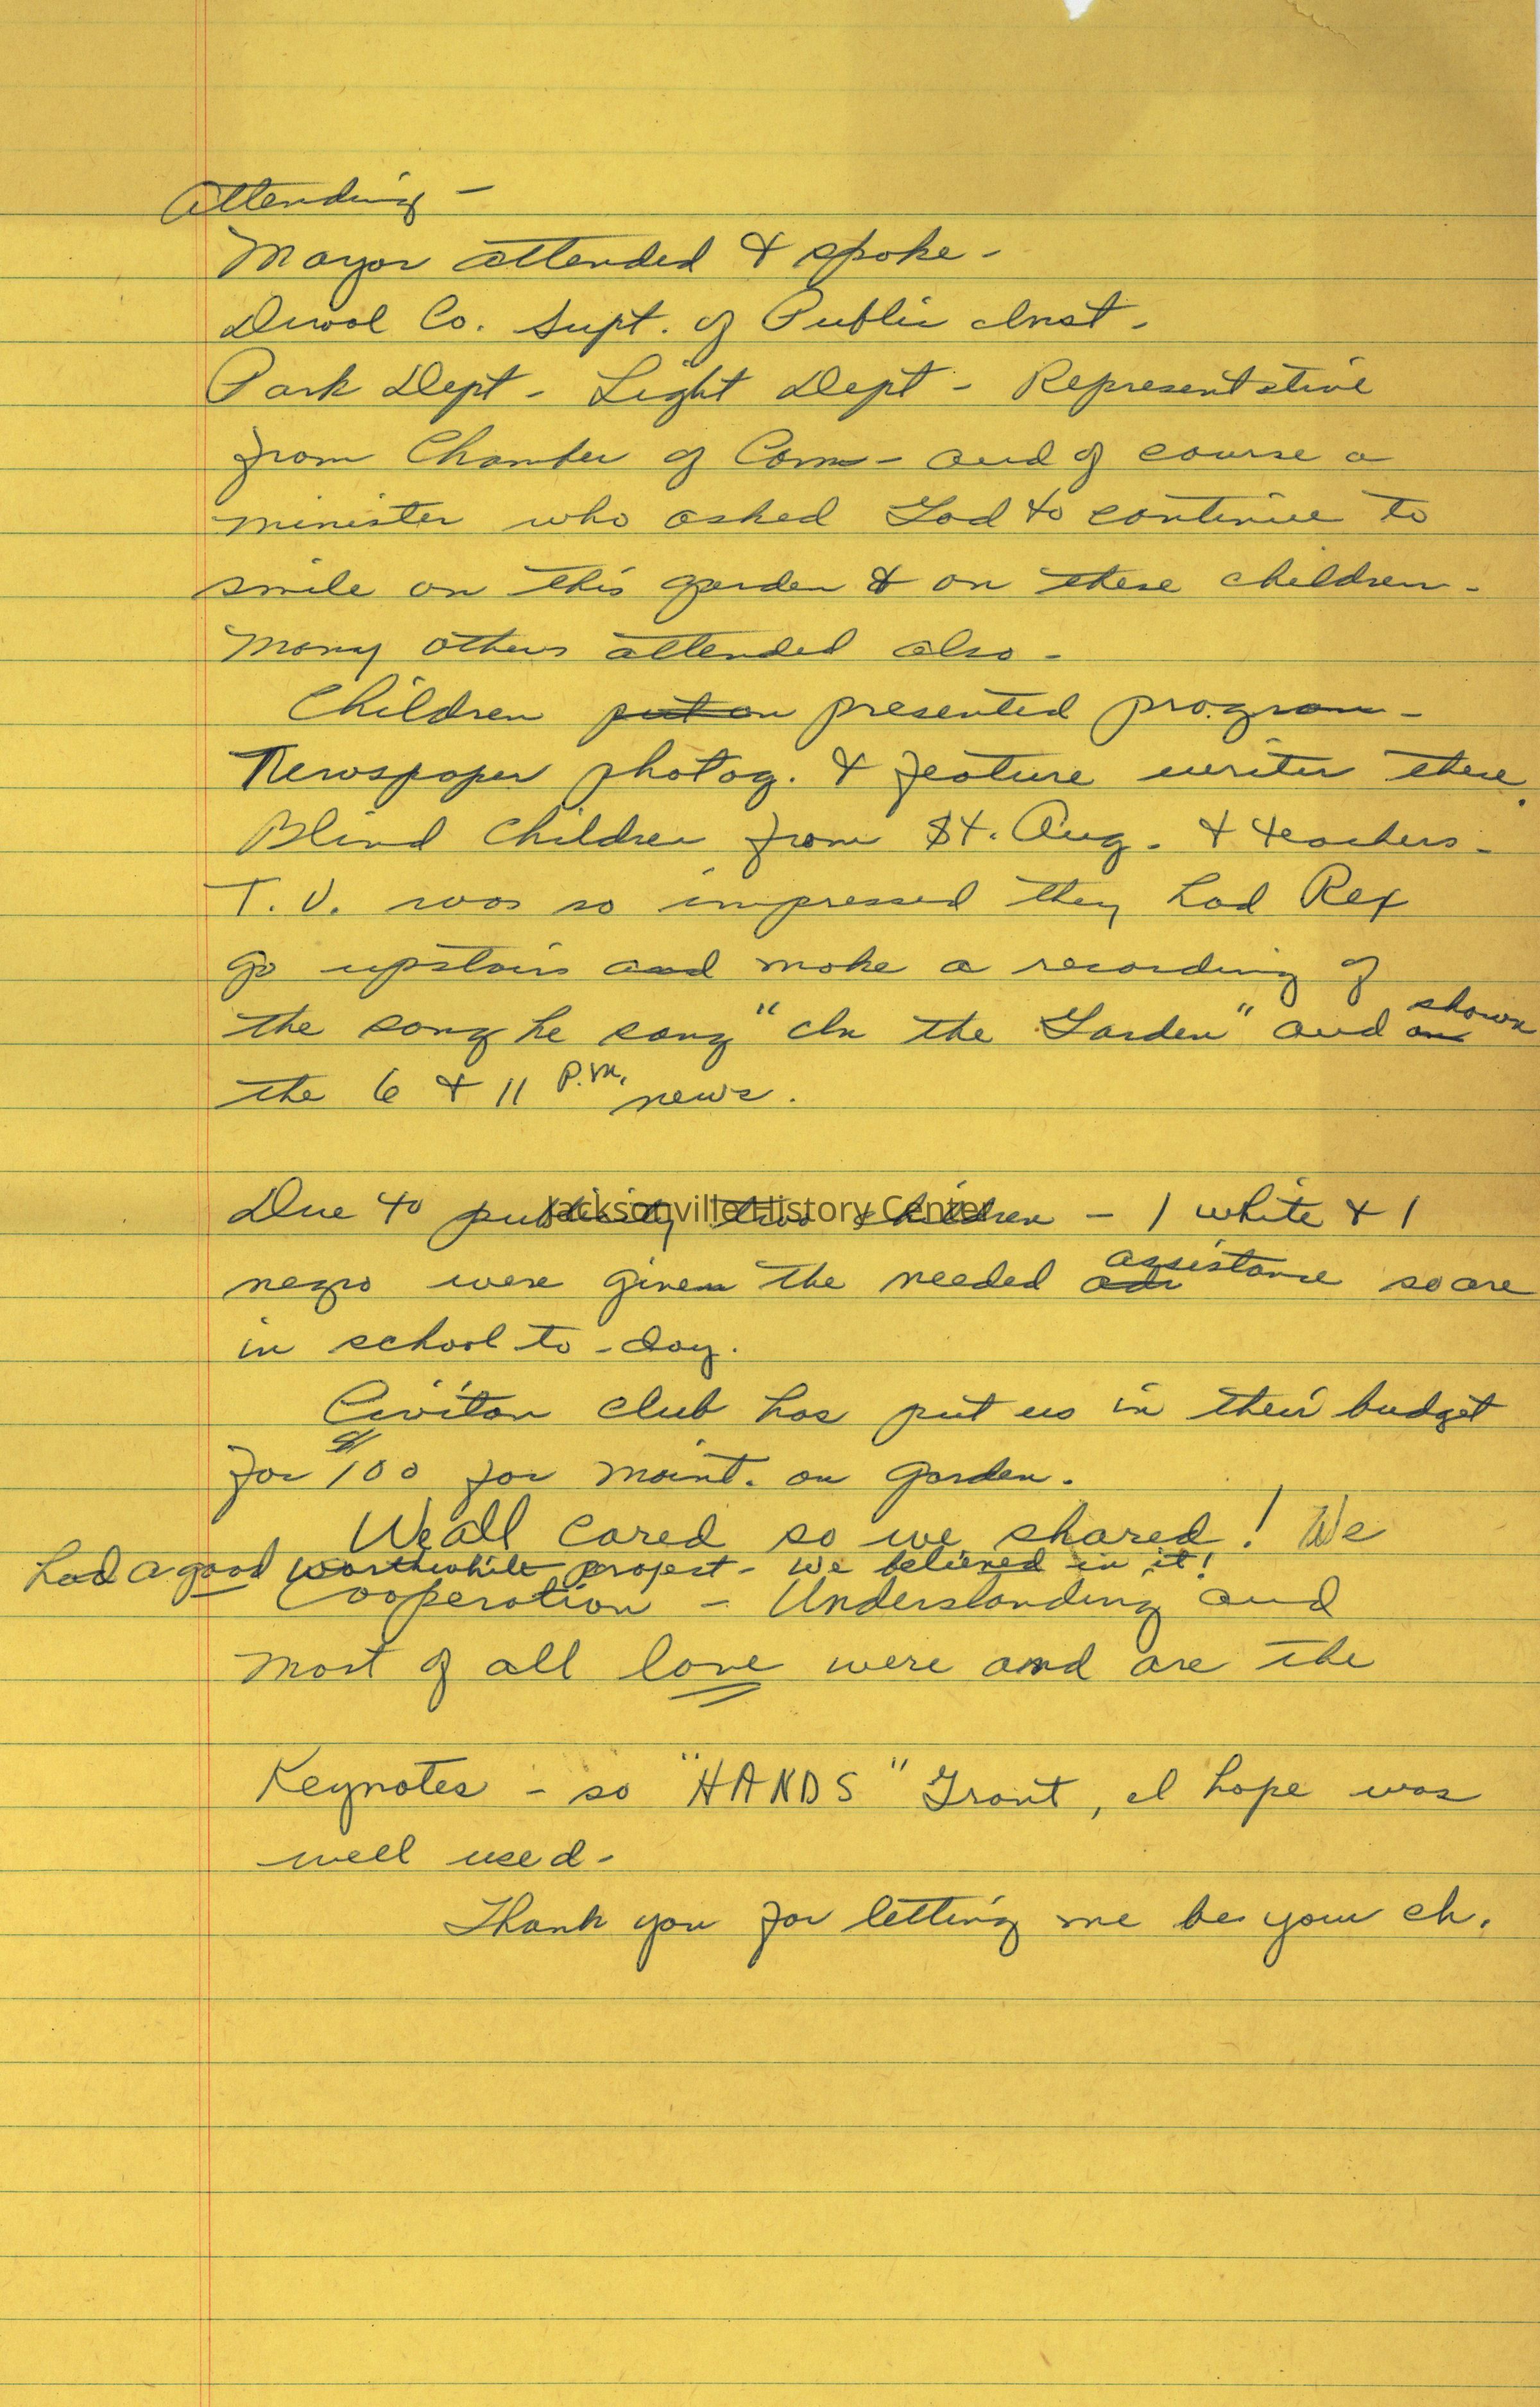 Attending -
Mayor attended & spoke -
Duval Co. Supt. of Public Inst -
Park Dept - Light Dept - Representative
from Chamber of Com - and of course a
minister who asked God to continue to
smile on this garden & on these children -
Many others attended also -
Children put on presented program -
Newspaper photog. & feature writer there.
Blind Children from St. Aug. & teachers -
T.V. was so impressed they had Rex
go upstairs and make a recording of
the song he sang "In the Garden" and on shown
the 6 & 11 P.M. news.
Due to publicity two children - 1 white & 1
Jacksonville History Center
negro were given the needed assistance so are
in school to-day.
Civitan Club has put us in their budget
for $100 for maint. on garden.
We all cared so we shared! We
had a good worthwhile project - we believed in it!
Cooperation - Understanding and
most of all love were and are the
Keynotes - so "HANDS" Grant, I hope was
well used -
Thank you for letting me be your ch.